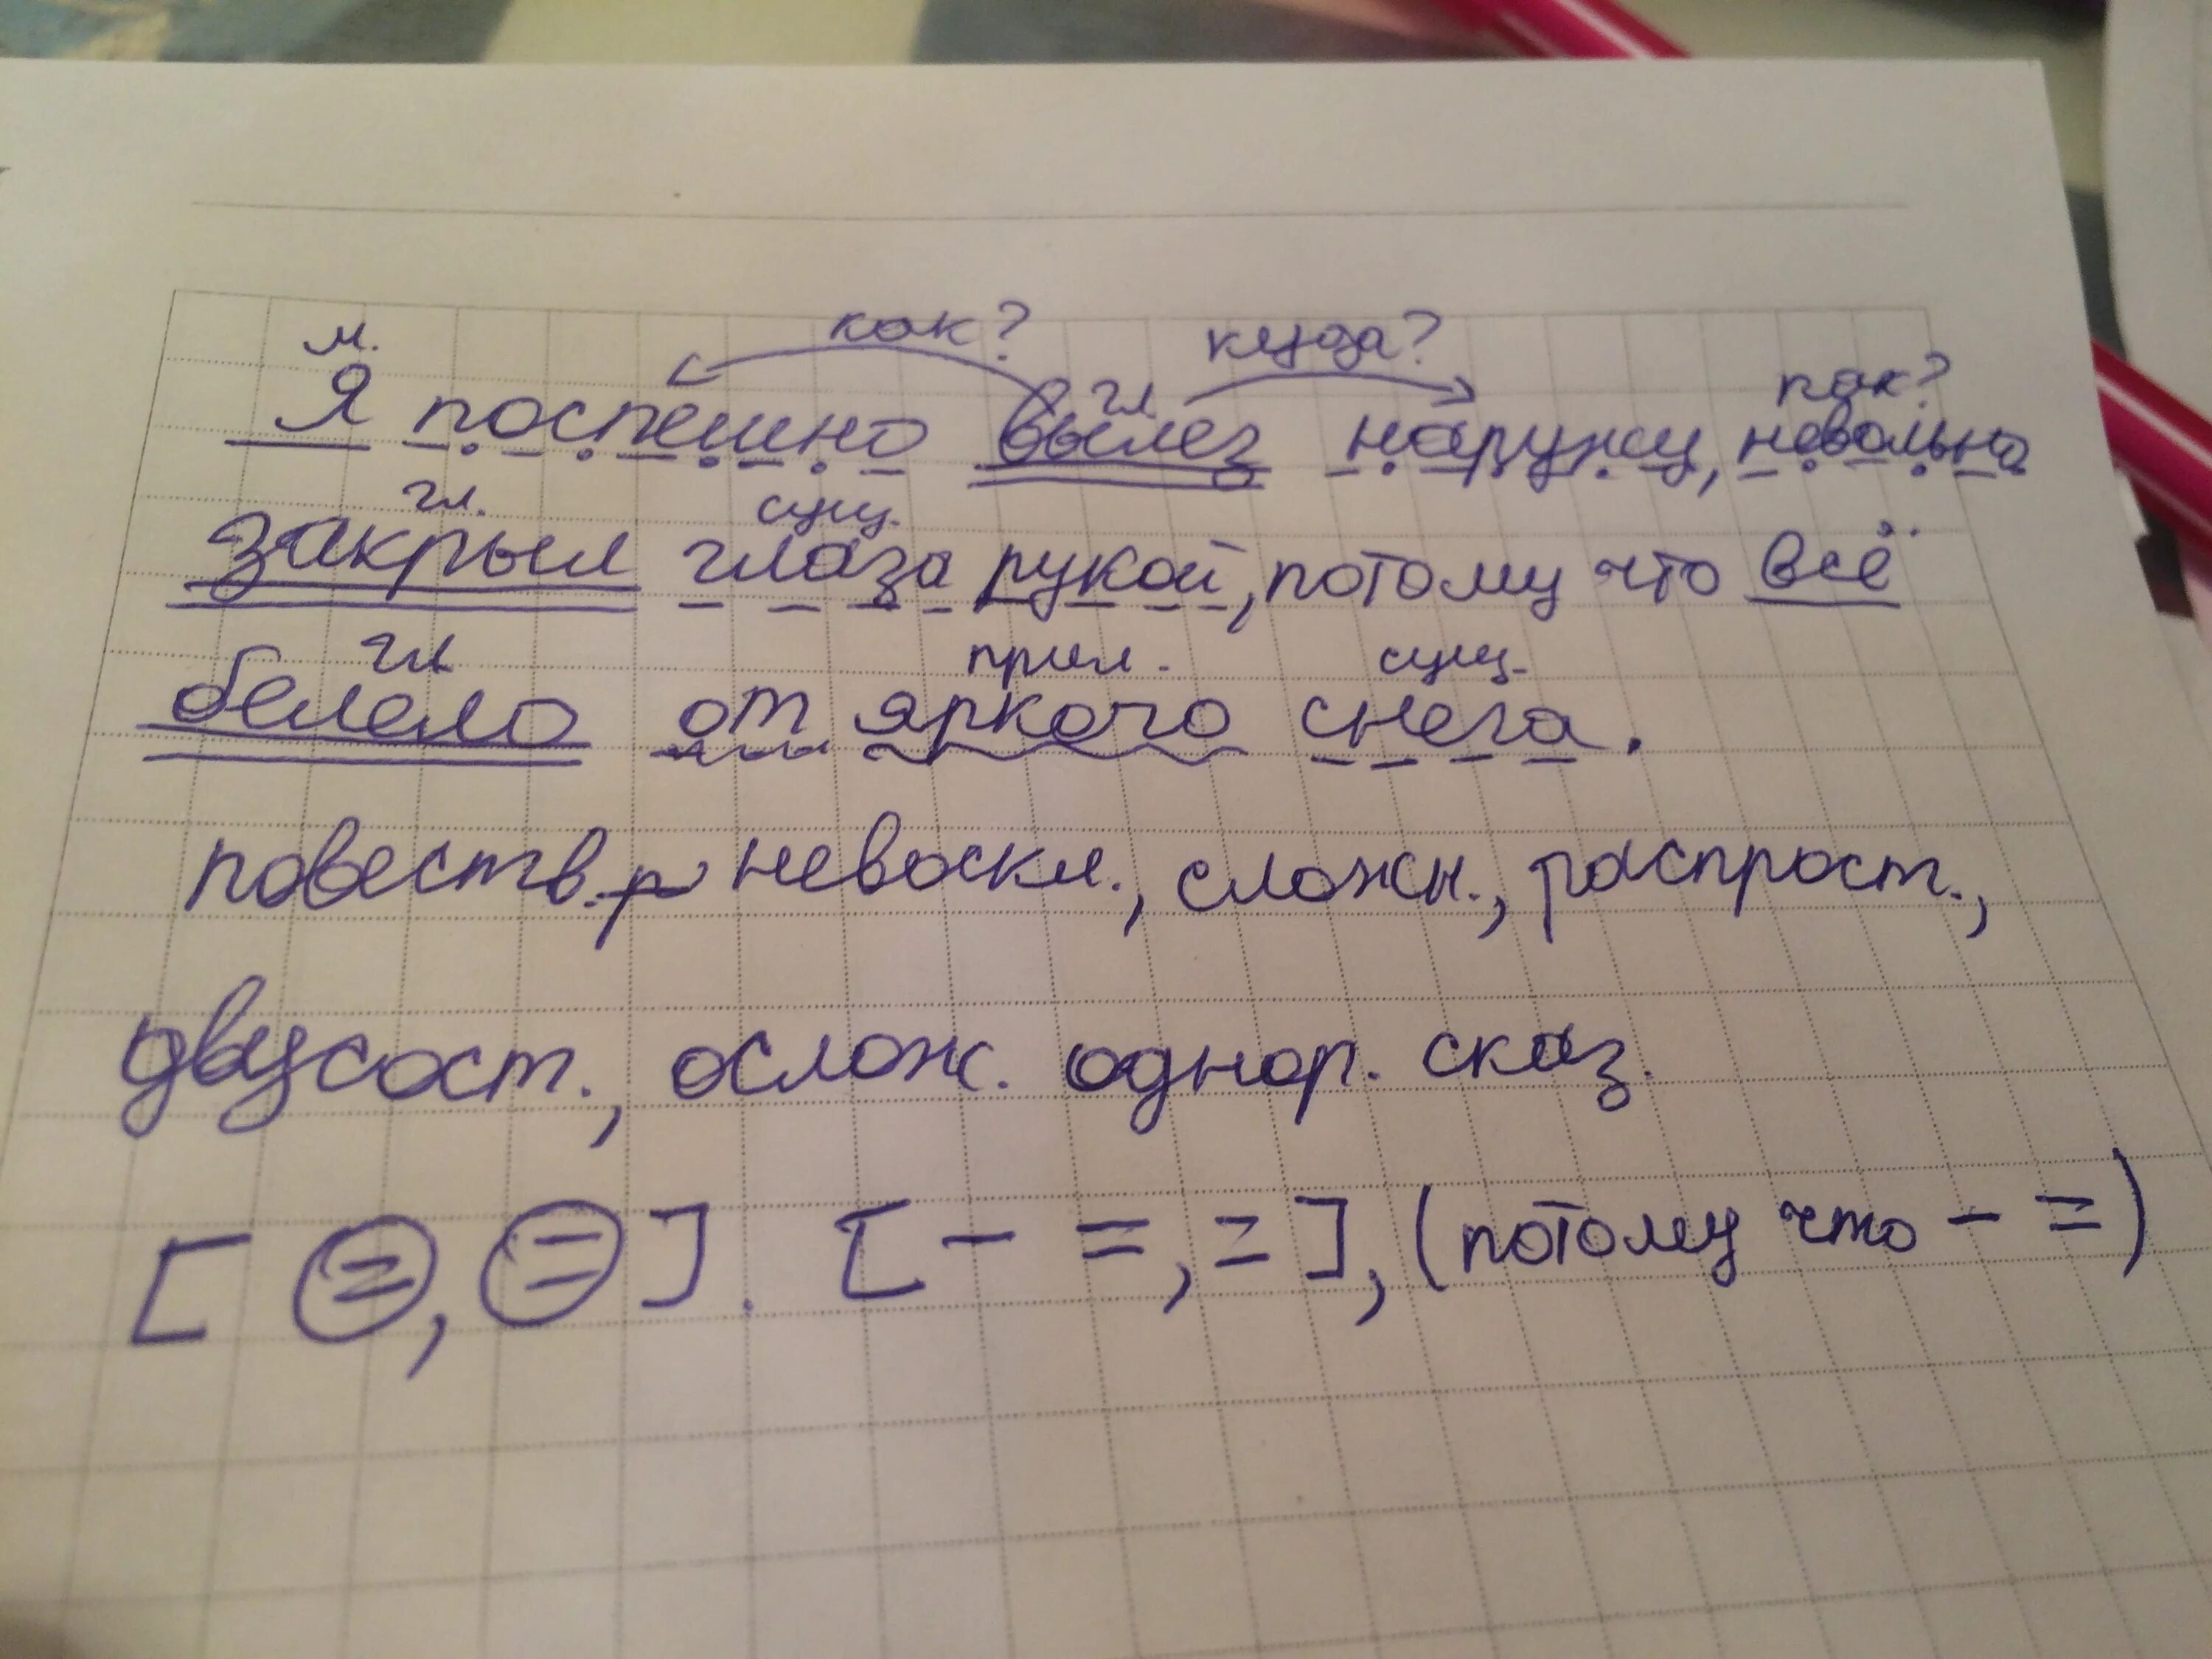 м. как? куда? как?
гл
Я поспешно вылез наружу, невольно
гл. сущ.
закрыл глаза рукой, потому что всё
гл прил. сущ.
белело от яркого снега.
повеств., невоскл., сложн., распрост.,
двусост., ослож. однор. сказ.
[ =, = ]. [ – =, = ], (потому что – =)